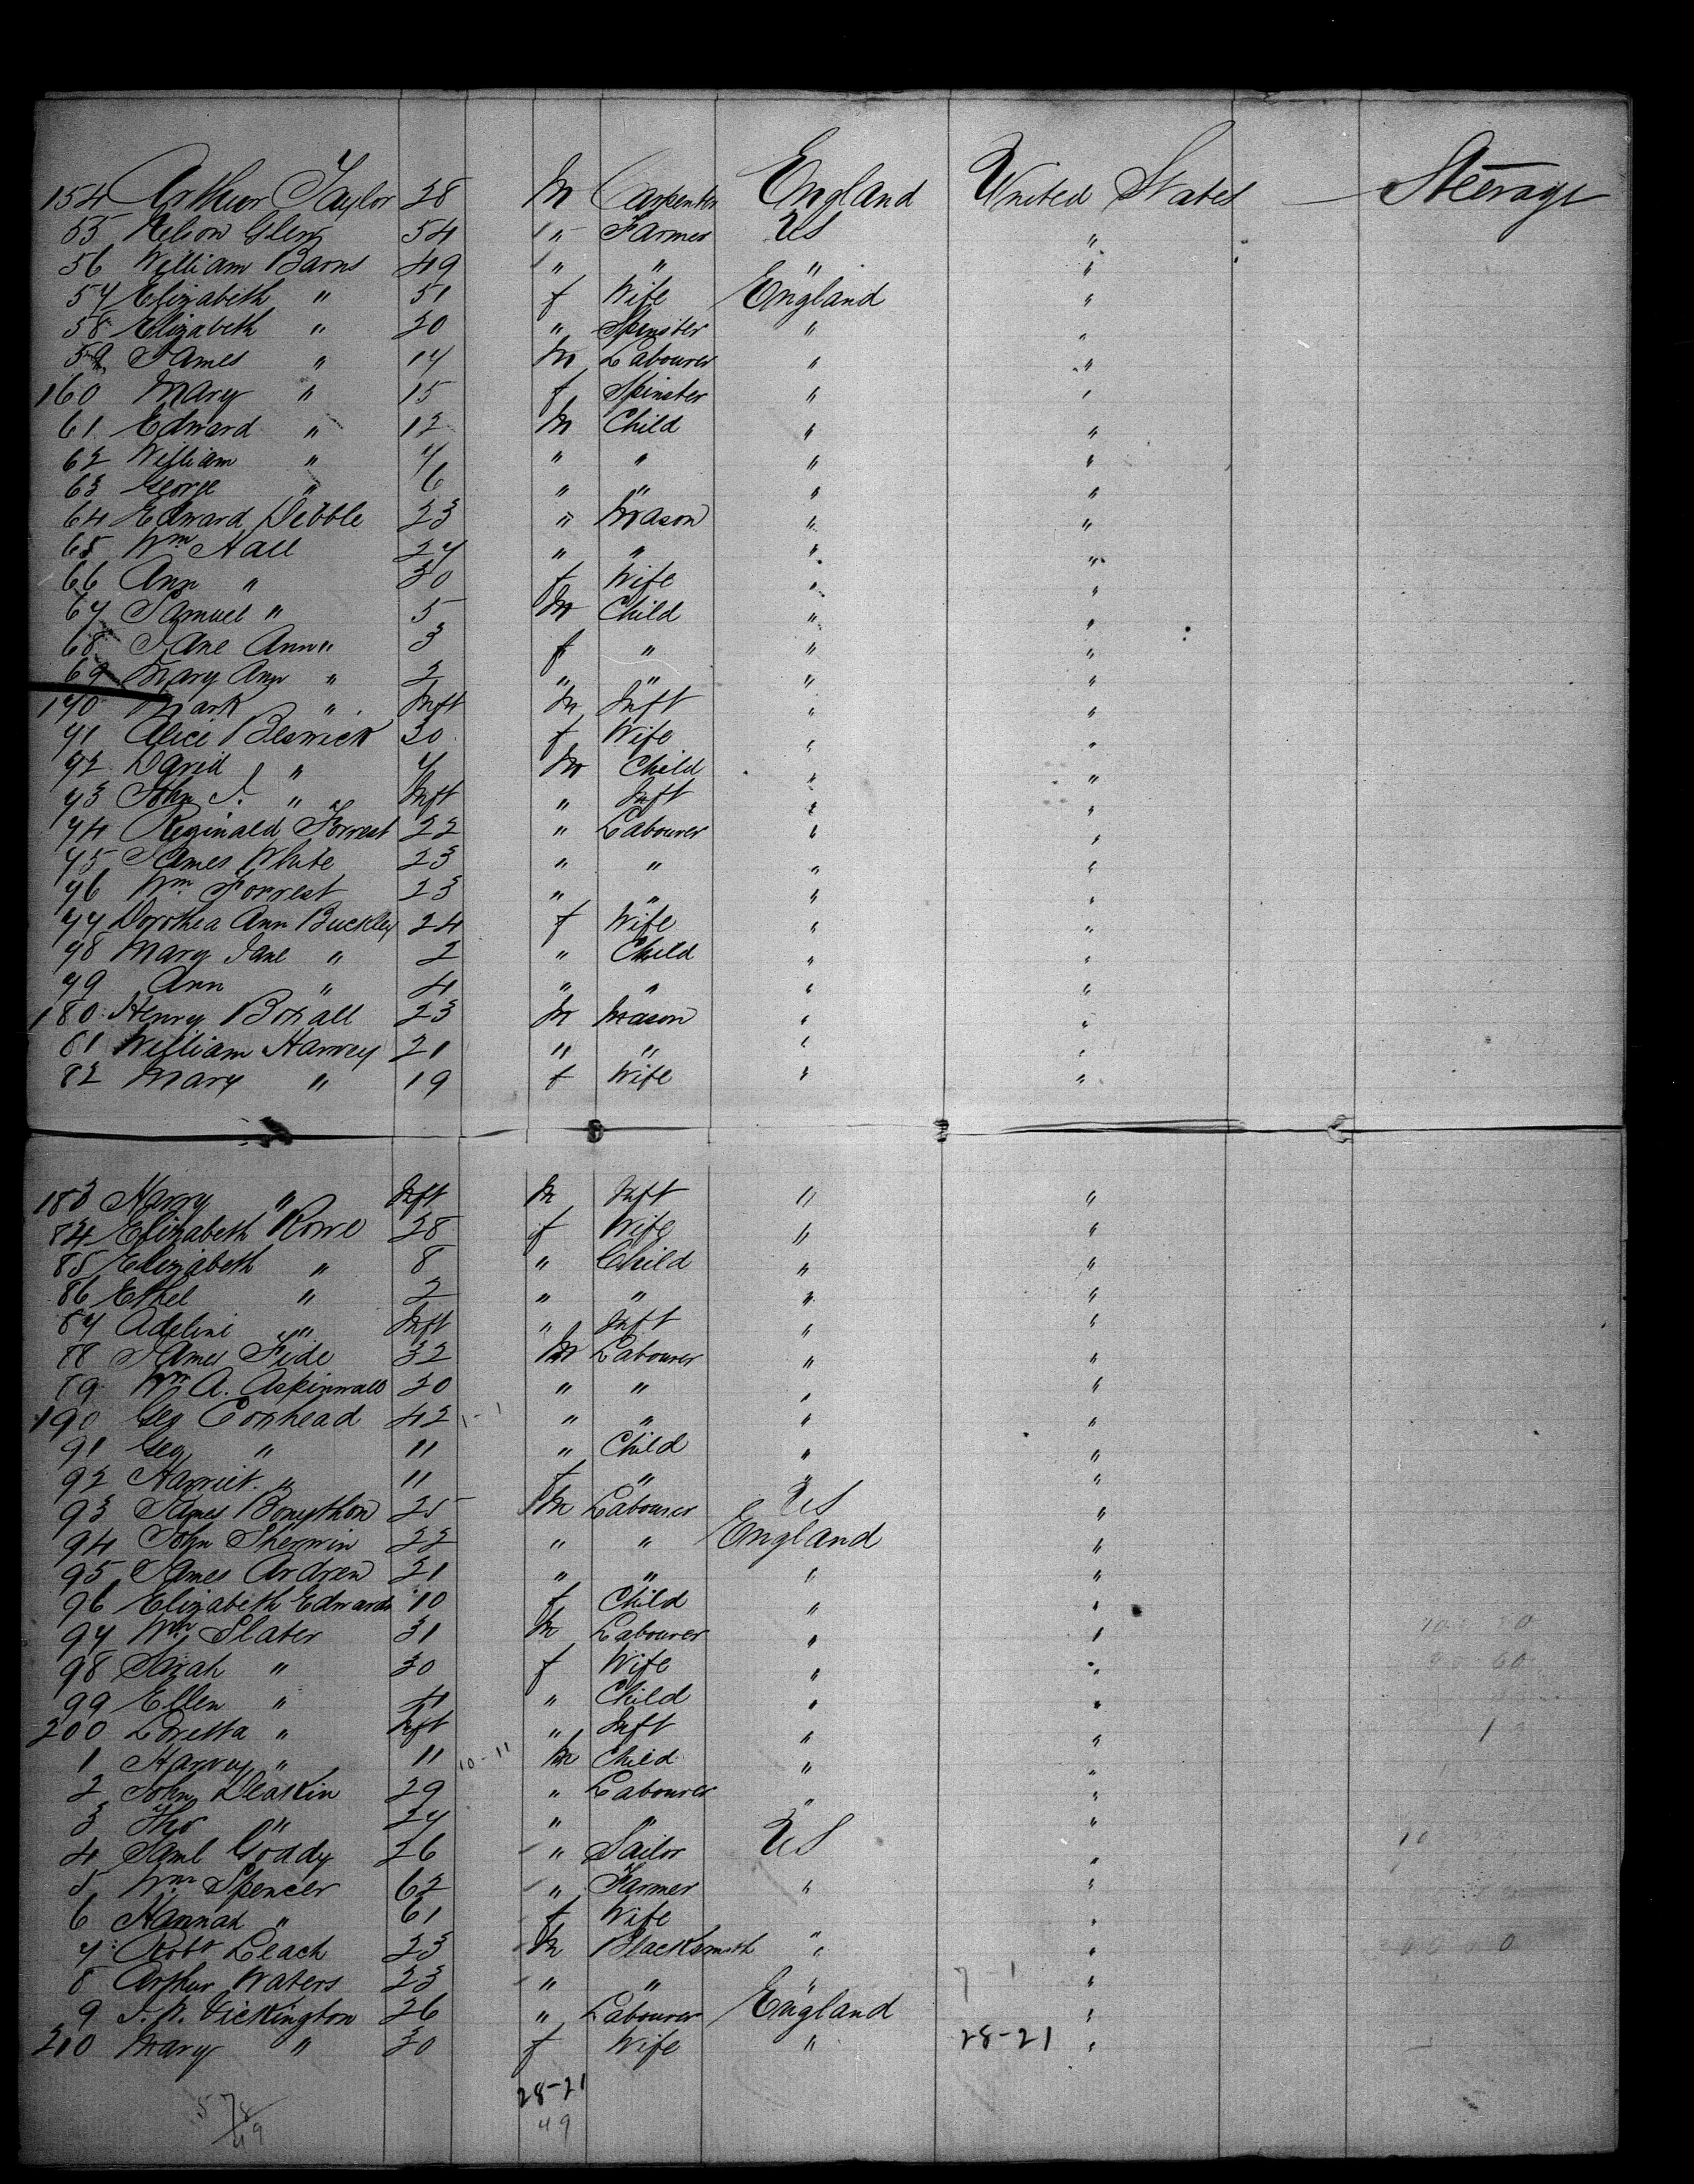 154 Arthur Taylor 28 M Carpenter England United States Steerage
55 Nelson Glen 54 " Farmer US "
56 William Barns 49 " " " "
57 Elizabeth " 51 f Wife England "
58 Elizabeth " 20 " Spinster " "
59 James " 17 M Labourer " "
160 Mary " 15 f Spinster " "
61 Edward " 12 M Child " "
62 William " 7 " " " "
63 George " 6 " " " "
64 Edward Dibble 23 " Mason " "
65 Wm Hall 27 " " " "
66 Ann " 30 f Wife " "
67 Samuel " 5 M Child " "
68 Jane Ann " 3 f " " "
69 Mary Ann " 2 " " " "
170 Mark " Inft M Inft " "
71 Alice Beswick 30 f Wife " "
72 David " 7 M Child " "
73 John J. " Inft " Inft " "
74 Reginald Forrest 22 " Labourer " "
75 James White 23 " " " "
76 Wm Forrest 23 " " " "
77 Dorothea Ann Buckley 24 f Wife " "
78 Mary Jane " 2 " Child " "
79 Ann " 4 " " " "
180 Henry Boxall 23 M Mason " "
81 William Harvey 21 " " " "
82 Mary " 19 f Wife " "
183 Harry " Inft M Inft " "
84 Elizabeth Rowe 28 f Wife " "
85 Elizabeth " 8 " Child " "
86 Ethel " 2 " " " "
87 Adeline " Inft " Inft " "
88 James Fide 32 M Labourer " "
89 Wm A. Aspinwall 20 " " " "
190 Geo Coxhead 42 1-1 " " " "
91 Geo " 11 " Child " "
92 Harriet " 11 f " " "
93 James Bonython 25 M Labourer US "
94 John Sherwin 22 " " England "
95 James Ardren 21 " " " "
96 Elizabeth Edwards 10 f Child " "
97 Wm Slater 31 M Labourer " "
98 Sarah " 30 f Wife " "
99 Ellen " 4 " Child " "
200 Loretta " Inft " Inft " "
1 Harvey " 11 10-11 M Child " "
2 John Deakin 29 " Labourer " "
3 Tho " 27 " " " "
4 Saml Goddy 26 " Sailor US "
5 Wm Spencer 62 " Farmer " "
6 Hannah " 61 f Wife "
7 Robt Leach 23 M Blacksmith " "
8 Arthur Waters 23 " " " 7-1 "
9 J.W. Vickington 26 " Labourer England "
210 Mary " 30 f Wife " 28-21 "
28-21
49